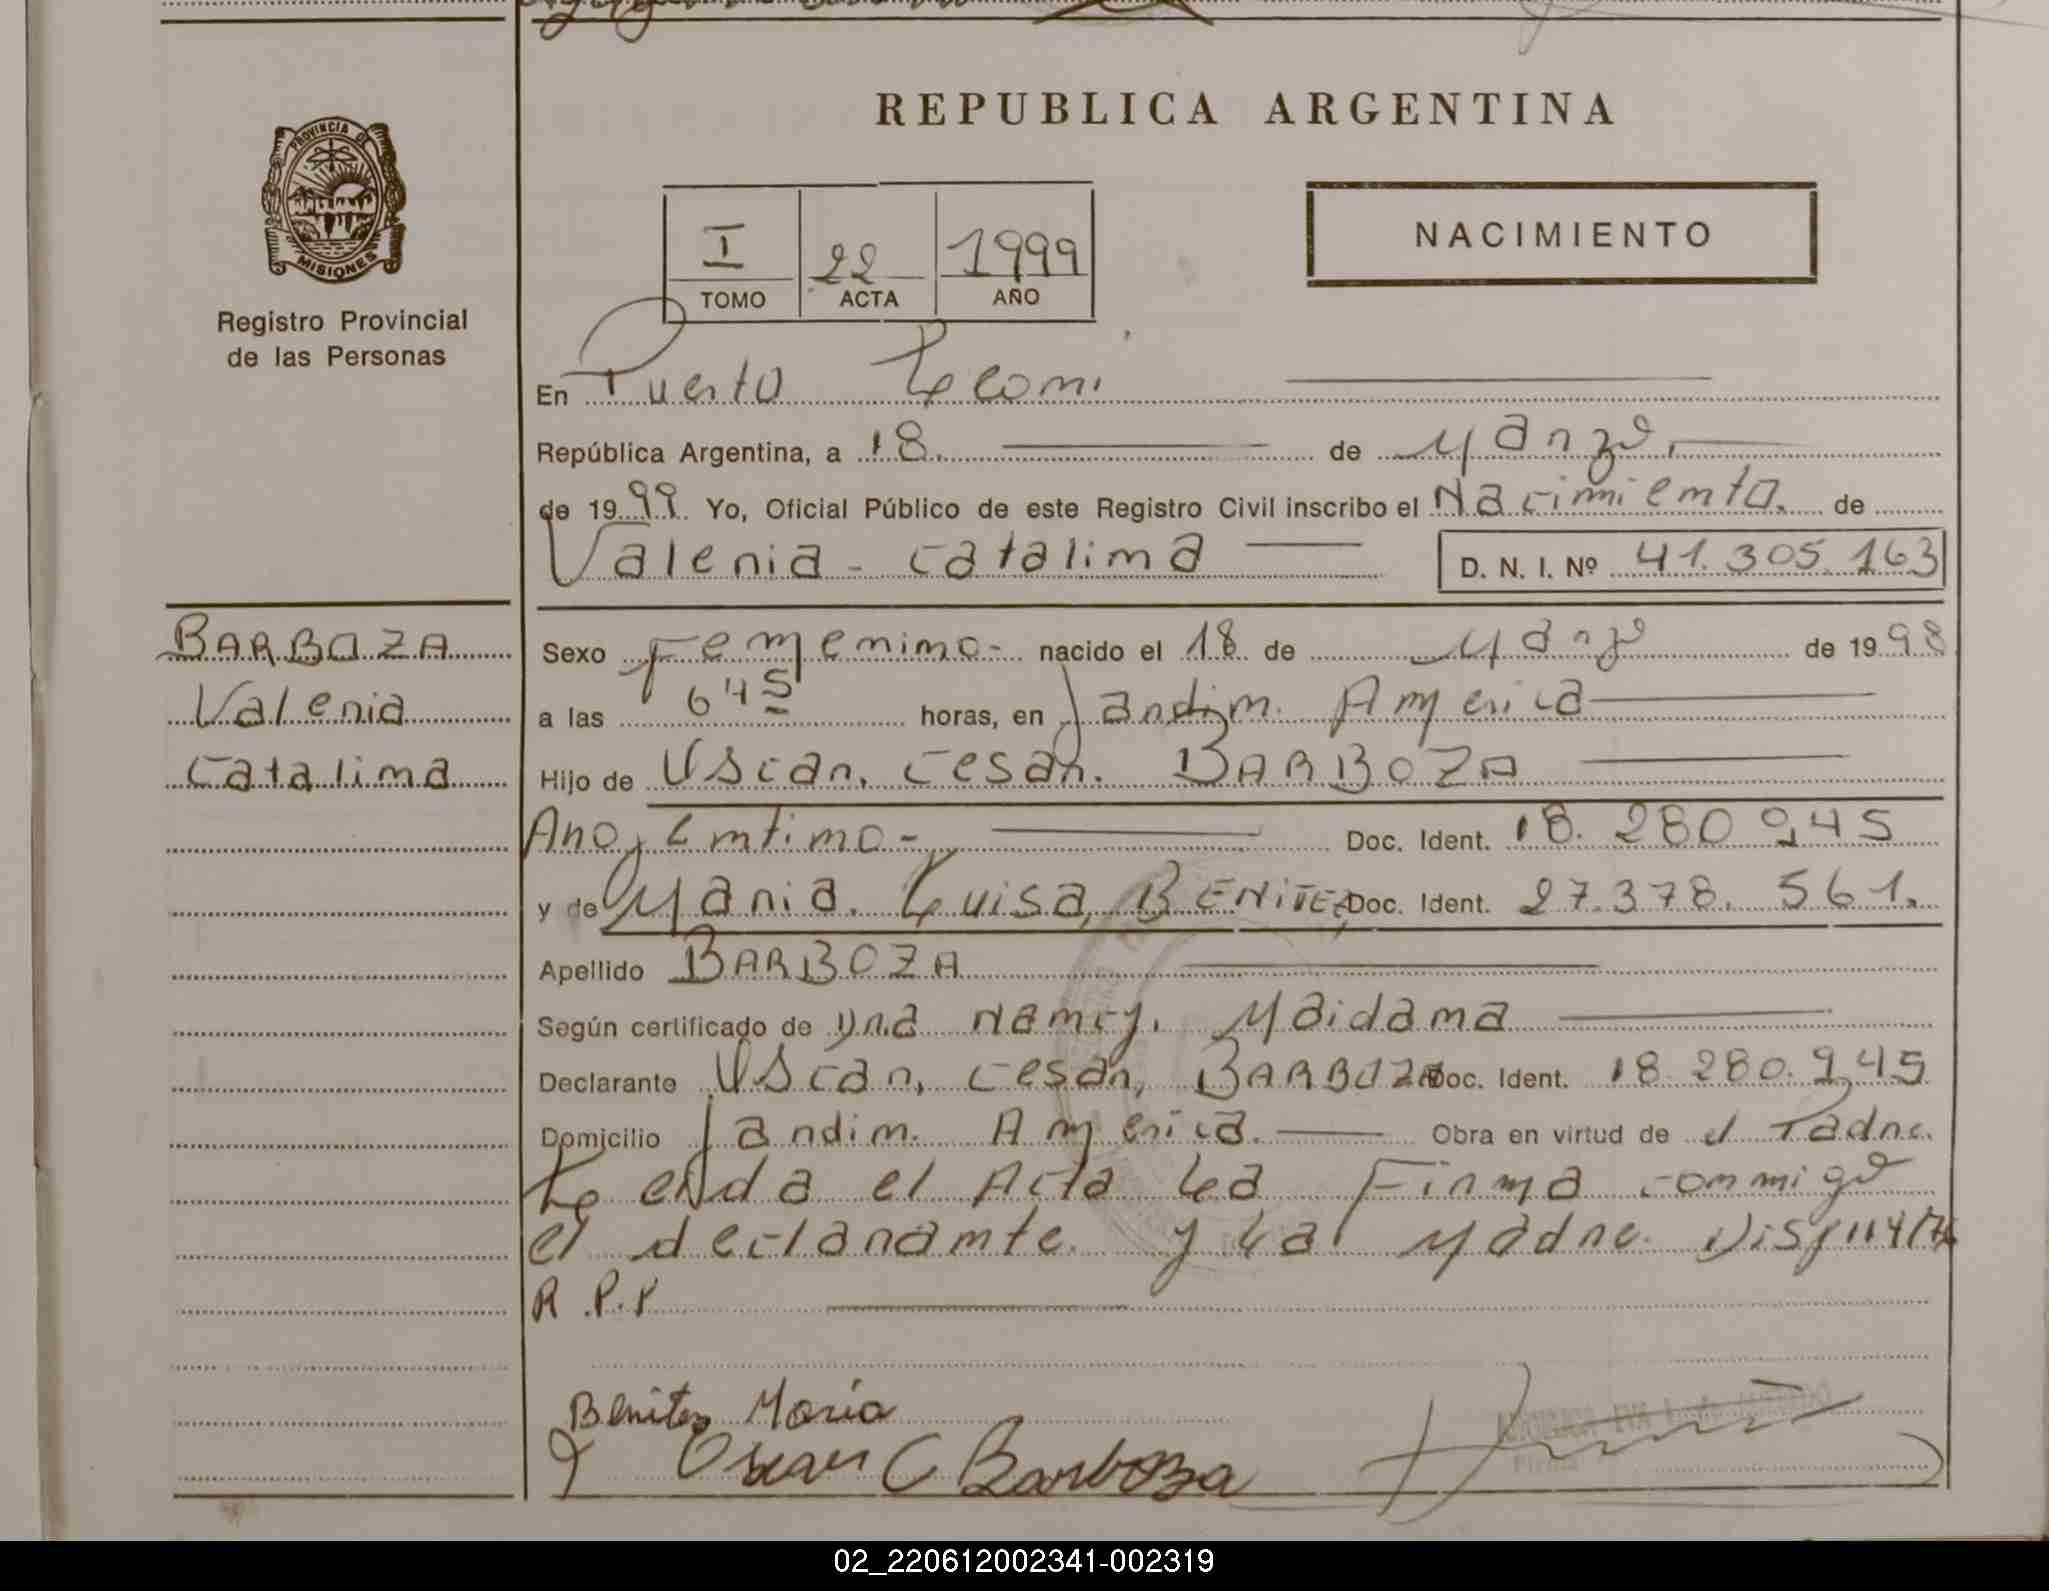 REPUBLICA ARGENTINA
PROVINCIA DE
MISIONES
Registro Provincial
de las Personas
NACIMIENTO
I 22 1999
TOMO ACTA AÑO
En Puerto Leoni
República Argentina, a 18. de Marzo.
de 1999. Yo, Oficial Público de este Registro Civil inscribo el Nacimiento. de
Valeria - Catalina D. N. I. Nº 41.305.163
BARBOZA
Valeria
Catalina
Sexo Femenino - nacido el 18 de Marzo de 1998
a las 6 45 horas, en Jardin America
Hijo de Oscar, Cesar. BARBOZA
Argentino - Doc. Ident. 18.280.945
y de Maria. Luisa, BENITEZ Doc. Ident. 27.378.561.
Apellido BARBOZA
Según certificado de Dra Nancy. Maidana
Declarante Oscar, Cesar, BARBOZA Doc. Ident. 18.280.945
Domicilio Jardin. America. Obra en virtud de el Padre.
Leida el Acta La Firma conmigo
el declarante y La Madre.
R.P.P
Benitez María
Oscar C Barboza
Firma
02_220612002341-002319